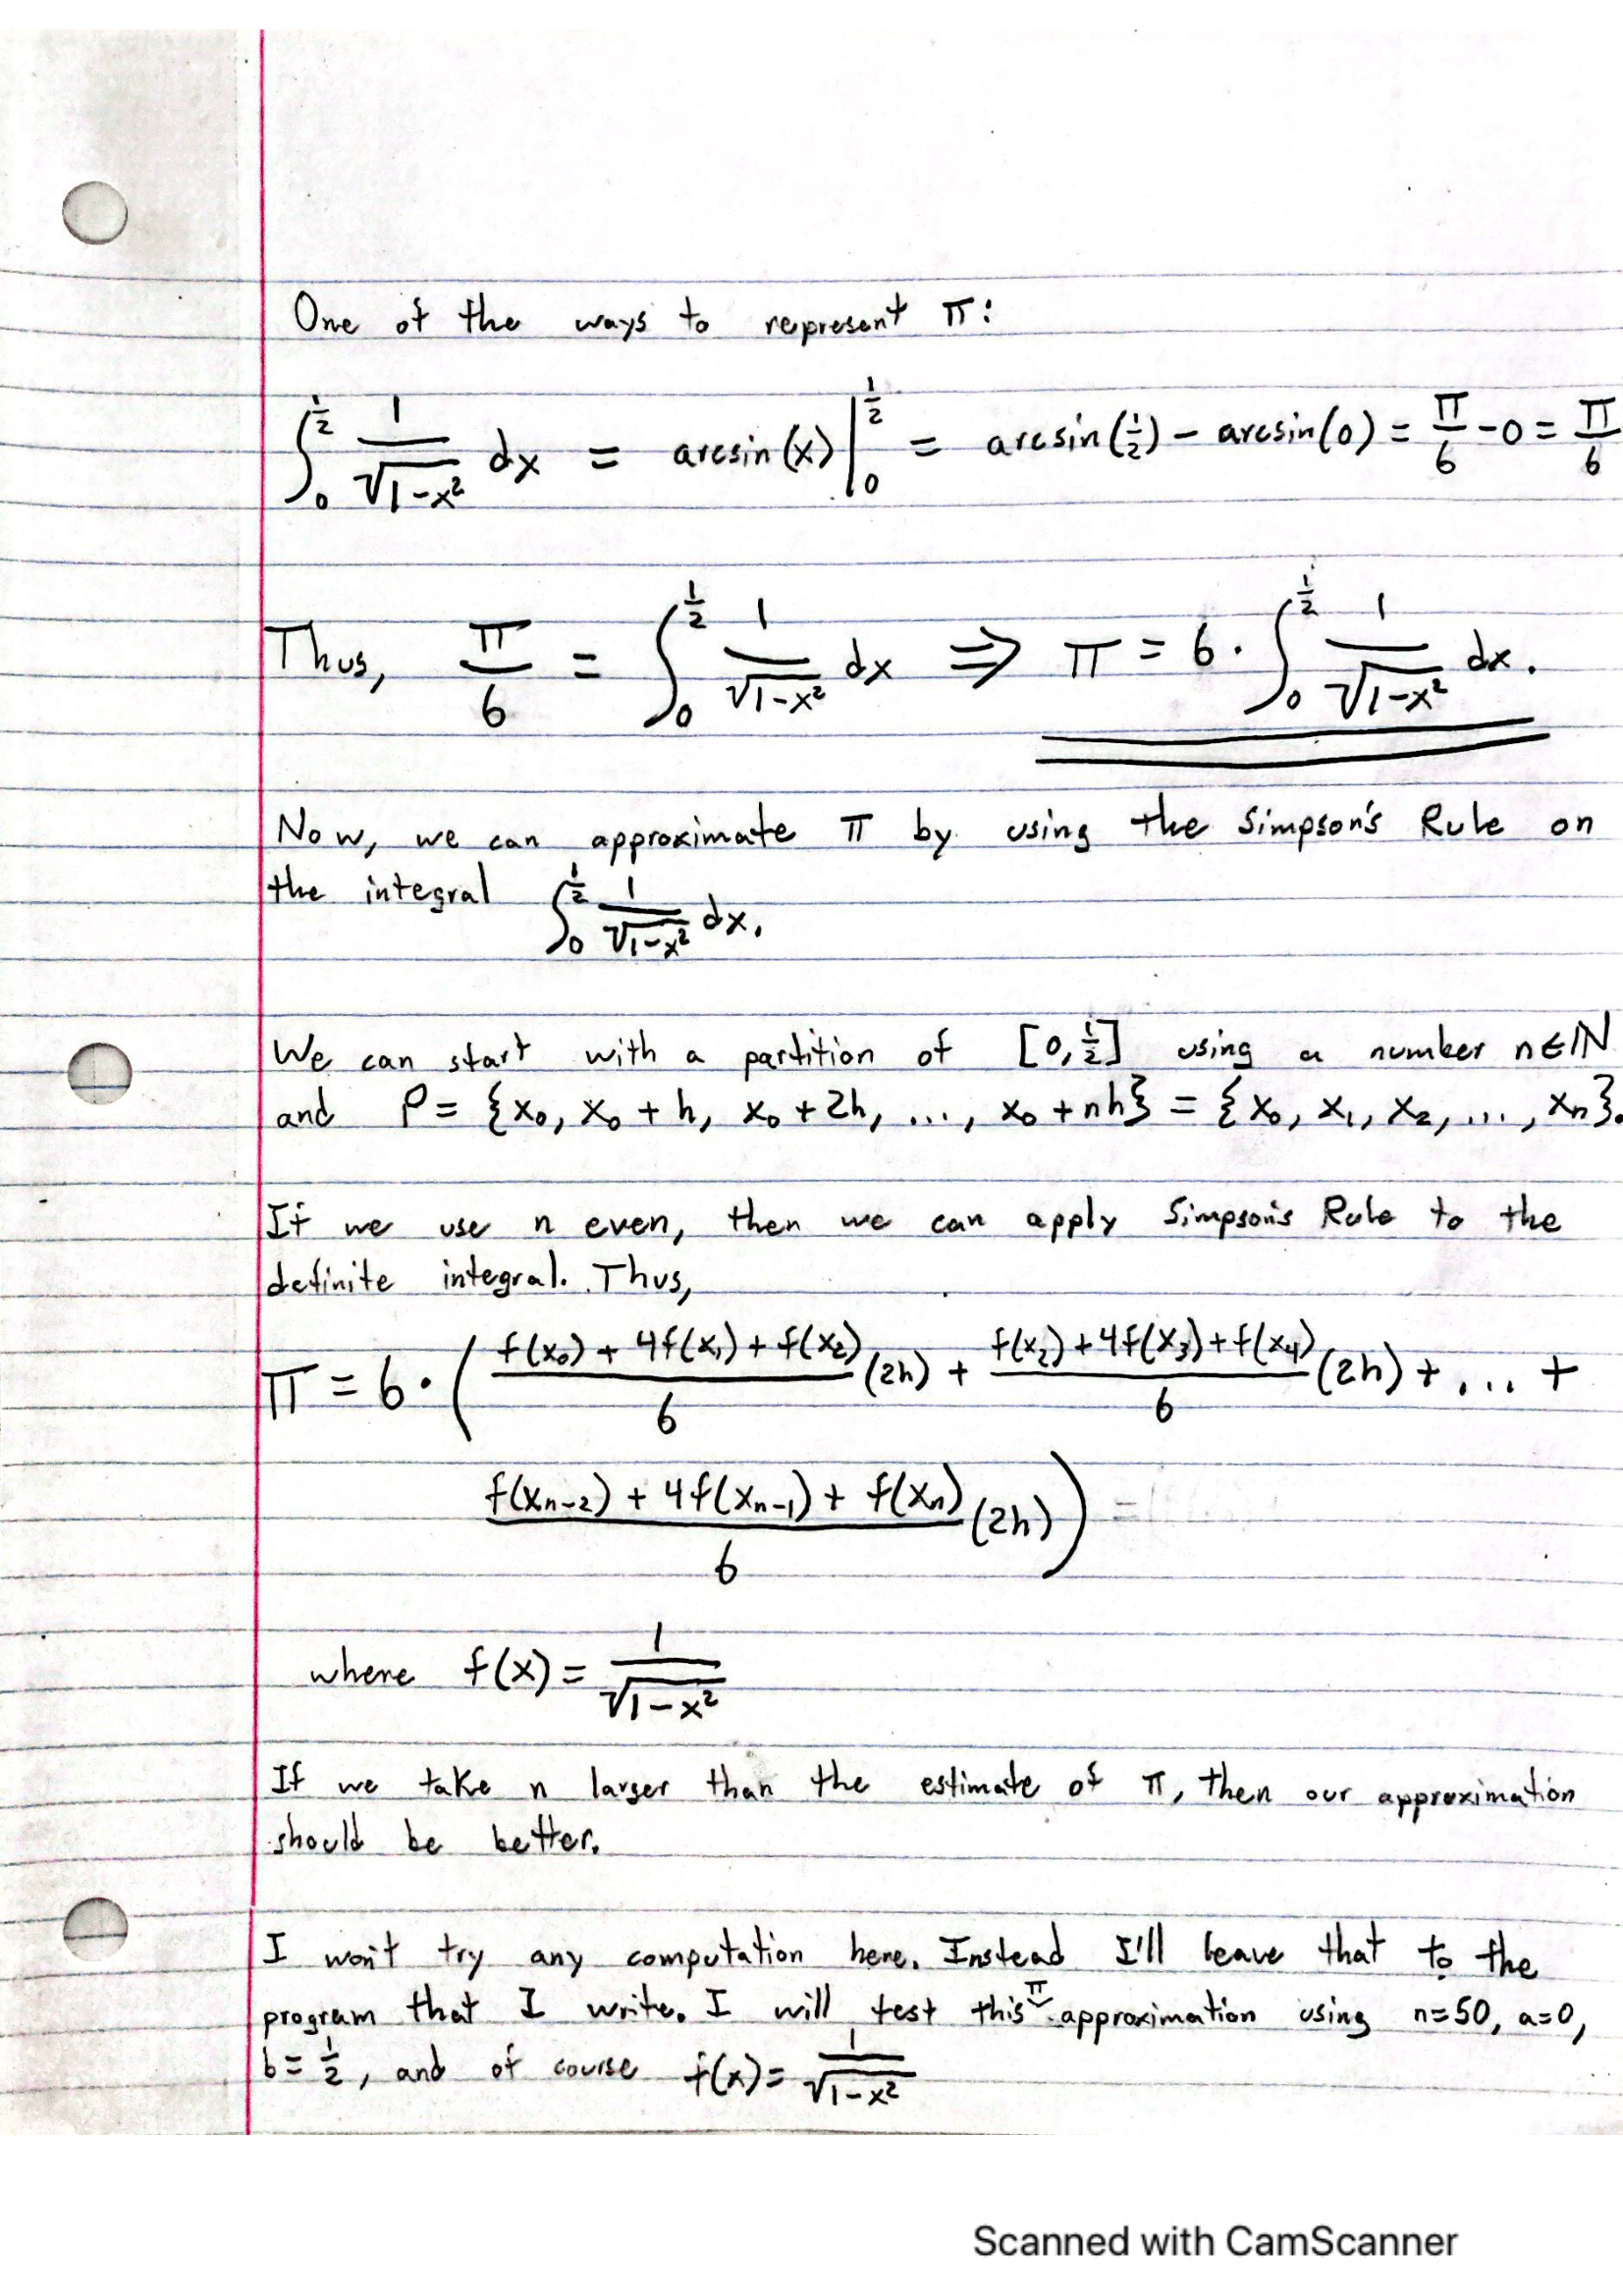 One of the ways to represent π:
∫₀^½ 1/√(1-x²) dx = arcsin(x) |₀^½ = arcsin(½) - arcsin(0) = π/6 - 0 = π/6
Thus, π/6 = ∫₀^½ 1/√(1-x²) dx ⇒ π = 6 · ∫₀^½ 1/√(1-x²) dx.
Now, we can approximate π by using the Simpson's Rule on
the integral ∫₀^½ 1/√(1-x²) dx.
We can start with a partition of [0,½] using a number n∈ℕ
and P = {x₀, x₀ + h, x₀ + 2h, ..., x₀ + nh} = {x₀, x₁, x₂, ..., xₙ}.
If we use n even, then we can apply Simpson's Rule to the
definite integral. Thus,
π = 6 · ( (f(x₀) + 4f(x₁) + f(x₂))/6 (2h) + (f(x₂) + 4f(x₃) + f(x₄))/6 (2h) + ... +
(f(xₙ₋₂) + 4f(xₙ₋₁) + f(xₙ))/6 (2h) )
where f(x) = 1/√(1-x²)
If we take n larger than the estimate of π, then our approximation
should be better.
I won't try any computation here. Instead I'll leave that to the
program that I write. I will test this π approximation using n=50, a=0,
b=½, and of course f(x)= 1/√(1-x²)
Scanned with CamScanner